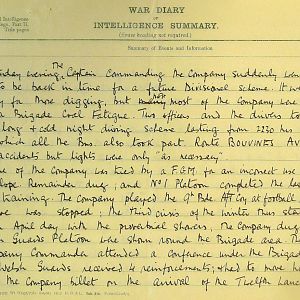 WAR DIARY
OF
INTELLIGENCE SUMMARY.
(Erase heading not required.)
Intelligence
Part II.
Title pages
Summary of Events and Information
evening The Captain Commanding the Company suddenly
to be back in time for a future Divisional scheme. It
for more digging, but Most of the Company were
Brigade Coal Fatigue. This officers and the drivers
long & cold night driving scheme lasting from 2230 hrs
which all the Bns. also took part. Route BOUVINES
accidents but lights were only "as necessary".
of the Company was tried by a F.G.M for an incorrect use
Remainder dug; and No 1 Platoon completed the
training. The Company played the 9th Bde A/T Coy at football
was stopped; the third crisis of the winter thus
April day with the proverbial showers. The Company dug
Guards Platoon were shown round the Brigade area. The
Company Commander attended a Conference under the
Welsh Guards received 4 reinforcements; & had to move
the Company billet on the arrival of the Twelfth